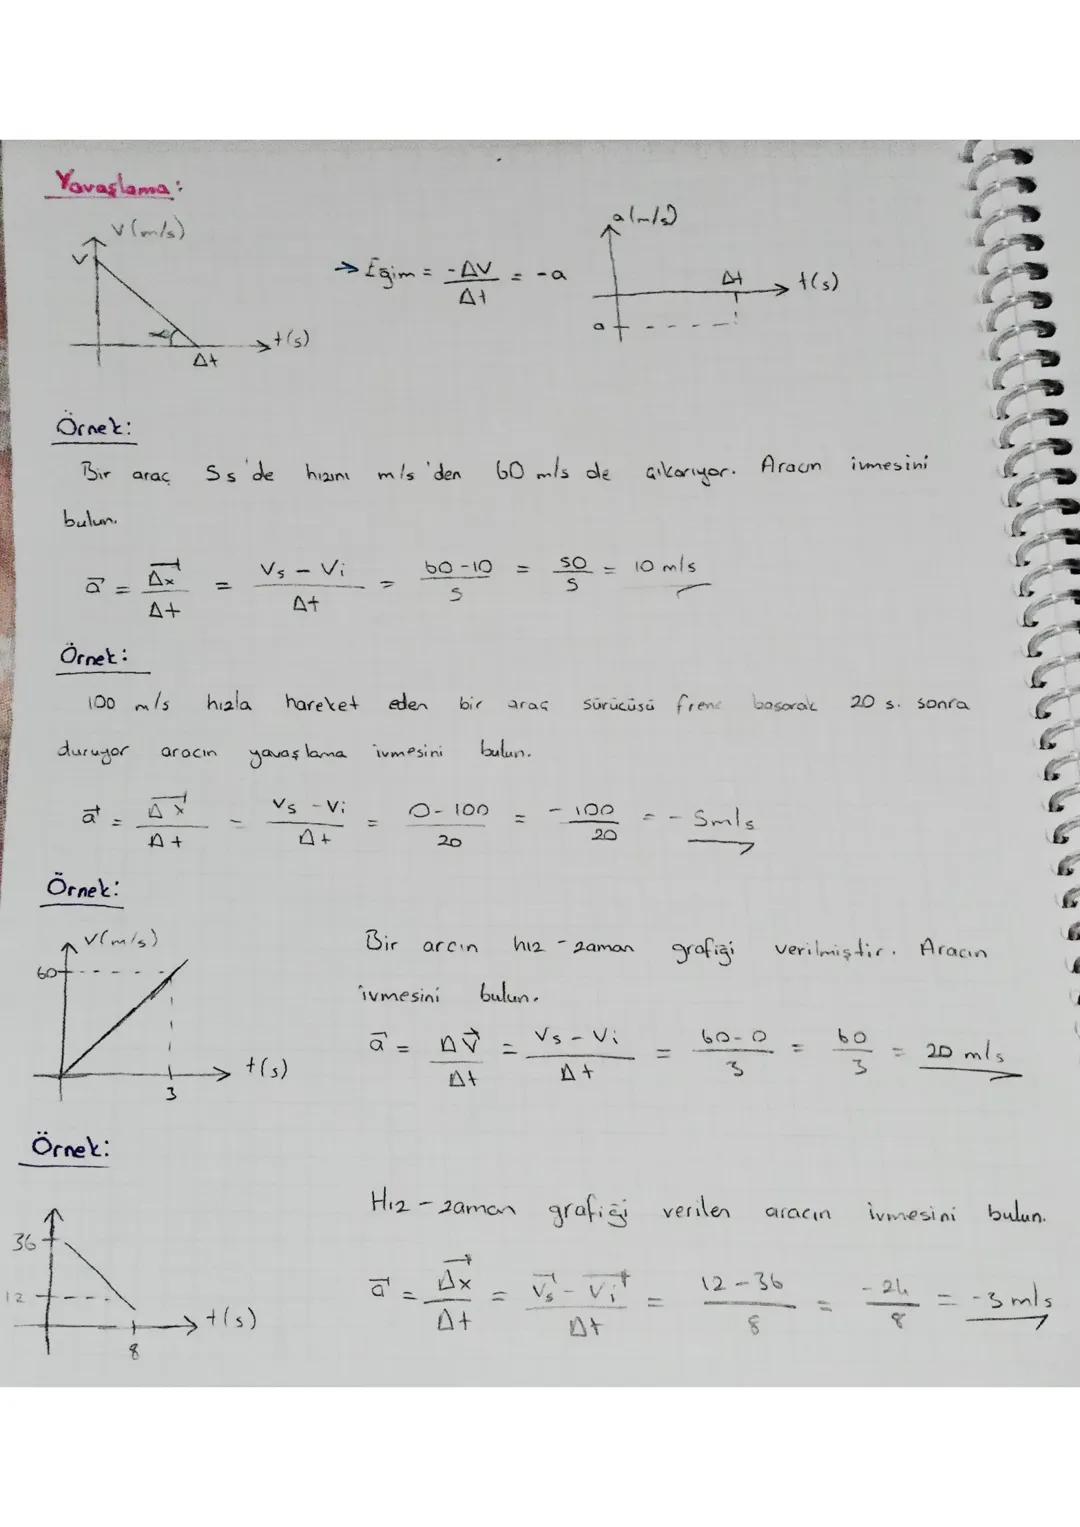 Yavaşlama:
v (m/s)
v
t(s)
Δt
→ Eğim = -ΔV / Δt = -a
a(m/s)
Δt
t(s)
a
Örnek:
Bir araç 5s'de hızını m/s'den 60 m/s de çıkarıyor. Aracın ivmesini
bulun.
a⃗ = Δx⃗ / Δt = Vs - Vi / Δt = 60-10 / 5 = 50 / 5 = 10 m/s
Örnek:
100 m/s hızla hareket eden bir araç sürücüsü frene basarak 20 s. sonra
duruyor aracın yavaşlama ivmesini bulun.
a⃗ = Δx⃗ / Δt = Vs - Vi / Δt = 0-100 / 20 = -100 / 20 = -5m/s
Örnek:
V(m/s)
60
t(s)
3
Bir arcın hız-zaman grafiği verilmiştir. Aracın
ivmesini bulun.
a⃗ = ΔV⃗ / Δt = Vs - Vi / Δt = 60-0 / 3 = 60 / 3 = 20 m/s
Örnek:
36
12
t(s)
8
Hız-zaman grafiği verilen aracın ivmesini bulun.
a⃗ = Δx⃗ / Δt = V⃗s - V⃗i / Δt = 12-36 / 8 = -24 / 8 = -3 m/s